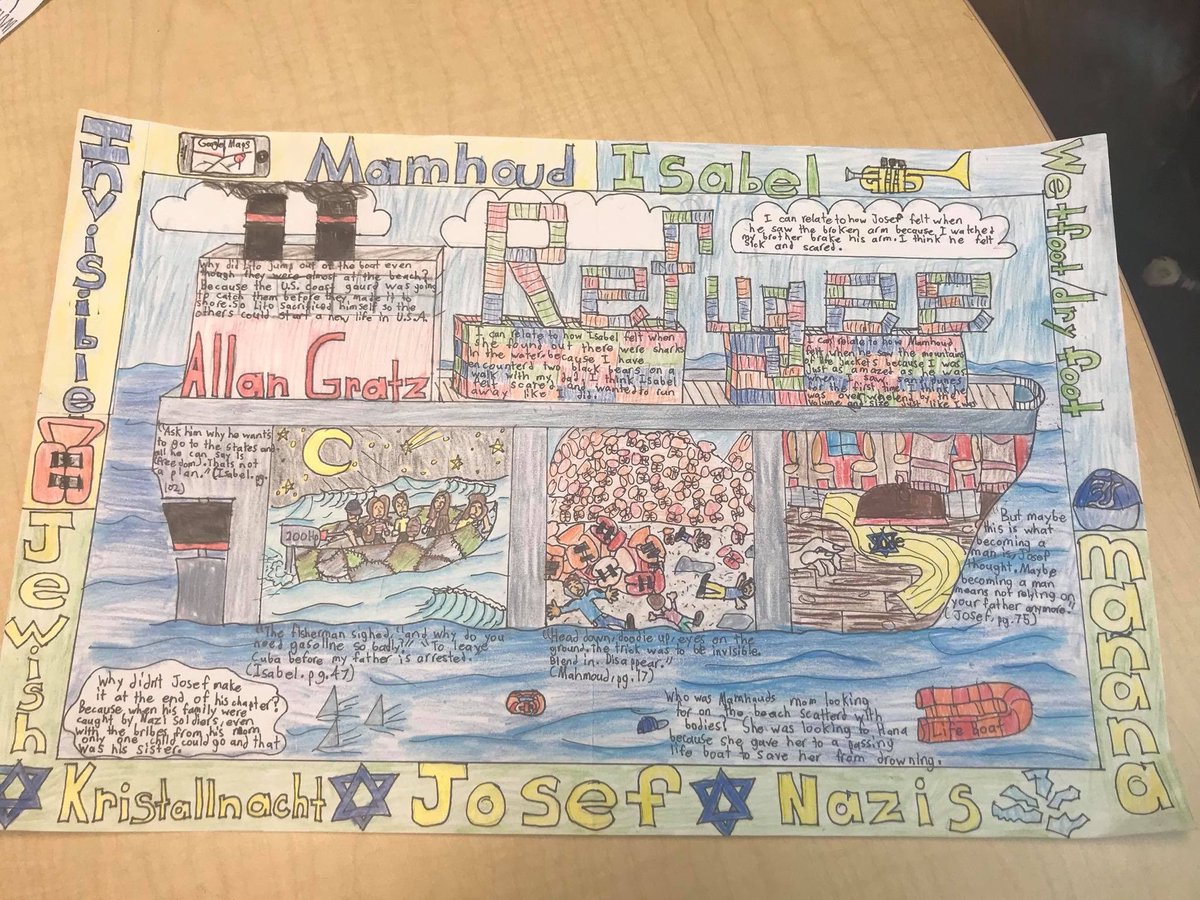 Google Maps
Mamhoud
Isabel
Wetfoot/dry foot
manana
Invisible
Jewish
Kristallnacht
Josef
Nazis
Refugee
Allan Gratz
I can relate to how Josef felt when
he saw the broken arm because I watched
my brother brake his arm. I think he felt
sick and scared.
Why did Lito jump out of the boat even
though they were almost at the beach?
Because the U.S. coast gaurd was going
to catch them before they made it to
shore. So Lito sacrificed himself so the
others could start a new life in U.S.A.
I can relate to how Isabel felt when
she found out there were sharks
in the water, because I have
encounterd two black bears on a
walk with my dad. I think Isabel
felt scared and wanted to run
away like I did.
I can relate to how Mamhoud
felt when he saw the mountains
of life jackets because I was
just as amazed as he was
when I saw sand dunes
for the first time. I think he
was overwhelmed by the
"Ask him why he wants
to go to the States and
all he can say is
freedom. Thats not
a plan." (Isabel. pg.
102)
200Hp
"But maybe
this is what
becoming a
man is, Josef
thought. Maybe
becoming a man
means not relying on
your father anymore."
(Josef, pg. 75)
"The fisherman sighed, "and why do you
need gasoline so badly?" "To leave
Cuba before my father is arrested.
(Isabel. pg. 47)
"Head down, doodie up, eyes on the
ground. The trick was to be invisible.
Blend in. Disappear."
(Mahmoud, pg. 17)
Why didn't Josef make
it at the end of his chapter?
Because, when his family were
caught by Nazi soldiers, even
with the bribes from his mom
only one child could go and that
was his sister.
Who was Mamhauds mom looking
for on the beach scatterd with
bodies? She was looking to Hana
because she gave her to a passing
life boat to save her from drowning.
Life boat